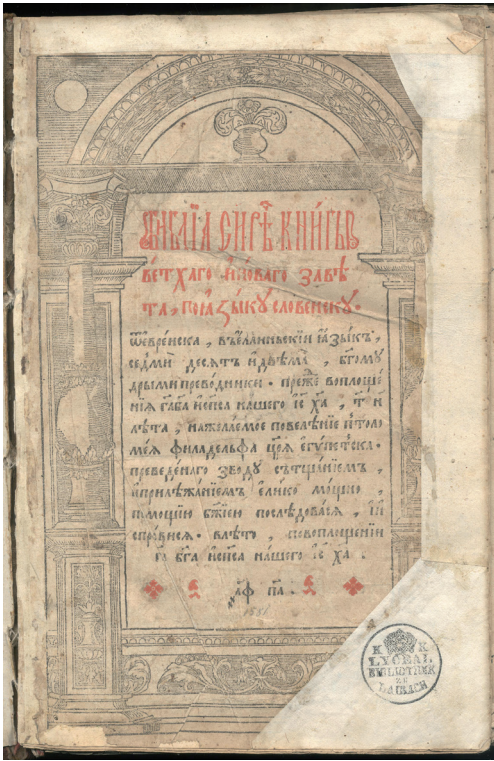 БИБЛІА СИРѢЧ КНИГЫ
ВЕТХАГО И НОВАГО ЗАВѢ
ТА, ПОꙖЗЫКУ СЛОВЕНСКУ.
ѿеврейска, въ еллиньскїи ꙗзыкъ,
седмї десятъ и двѣма, бг҃ому
дрыми преводники. преже воплоще
нїя гд҃а бг҃а и сп҃са нашего іс҃ ха҃, т҃ и
лѣта, на желаемое повелѣнїе птоло
мея филаделфа цр҃я єгипетска.
преведенаго зводу сътщанїемъ,
и прилѣжанїемъ елико мощно,
помощїю бж҃їею послѣдовася, и и
справися. в лѣто, по воплощенїи
гд҃а бг҃а и сп҃са нашего іс҃ ха҃.
҂аф па.
1581
K. K.
LYCEAL
BIBLIOTHEK
ZU
LAIBACH